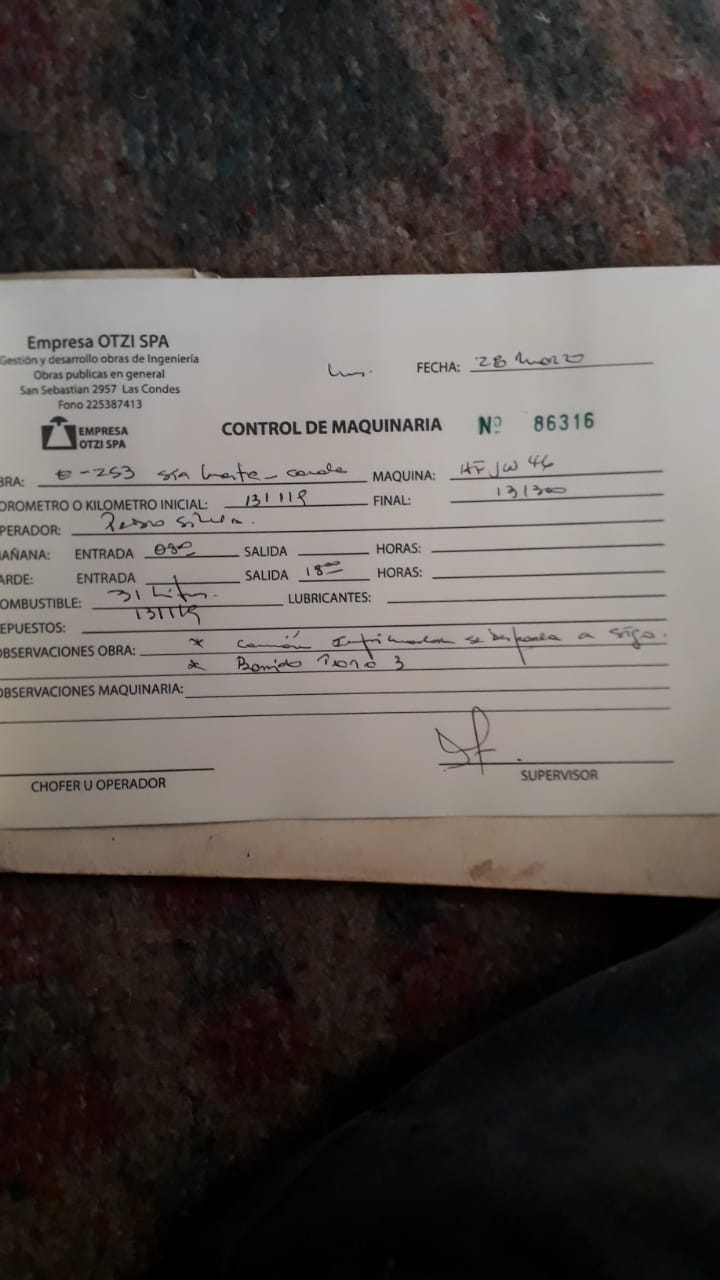 Empresa OTZI SPA
Gestión y desarrollo obras de Ingeniería
Obras publicas en general
San Sebastian 2957 Las Condes
Fono 225387413
FECHA: 28 Marzo
EMPRESA
OTZI SPA
CONTROL DE MAQUINARIA Nº 86316
BRA: E-253 MAQUINA: HFJW 46
OROMETRO O KILOMETRO INICIAL: 131119 FINAL: 131300
PERADOR: Pedro Silva.
AÑANA: ENTRADA 0800 SALIDA HORAS:
ARDE: ENTRADA SALIDA 1800 HORAS:
OMBUSTIBLE: 31 Lits. LUBRICANTES:
131119
EPUESTOS:
OBSERVACIONES OBRA: * Camión se a
* 3
OBSERVACIONES MAQUINARIA:
CHOFER U OPERADOR
SUPERVISOR